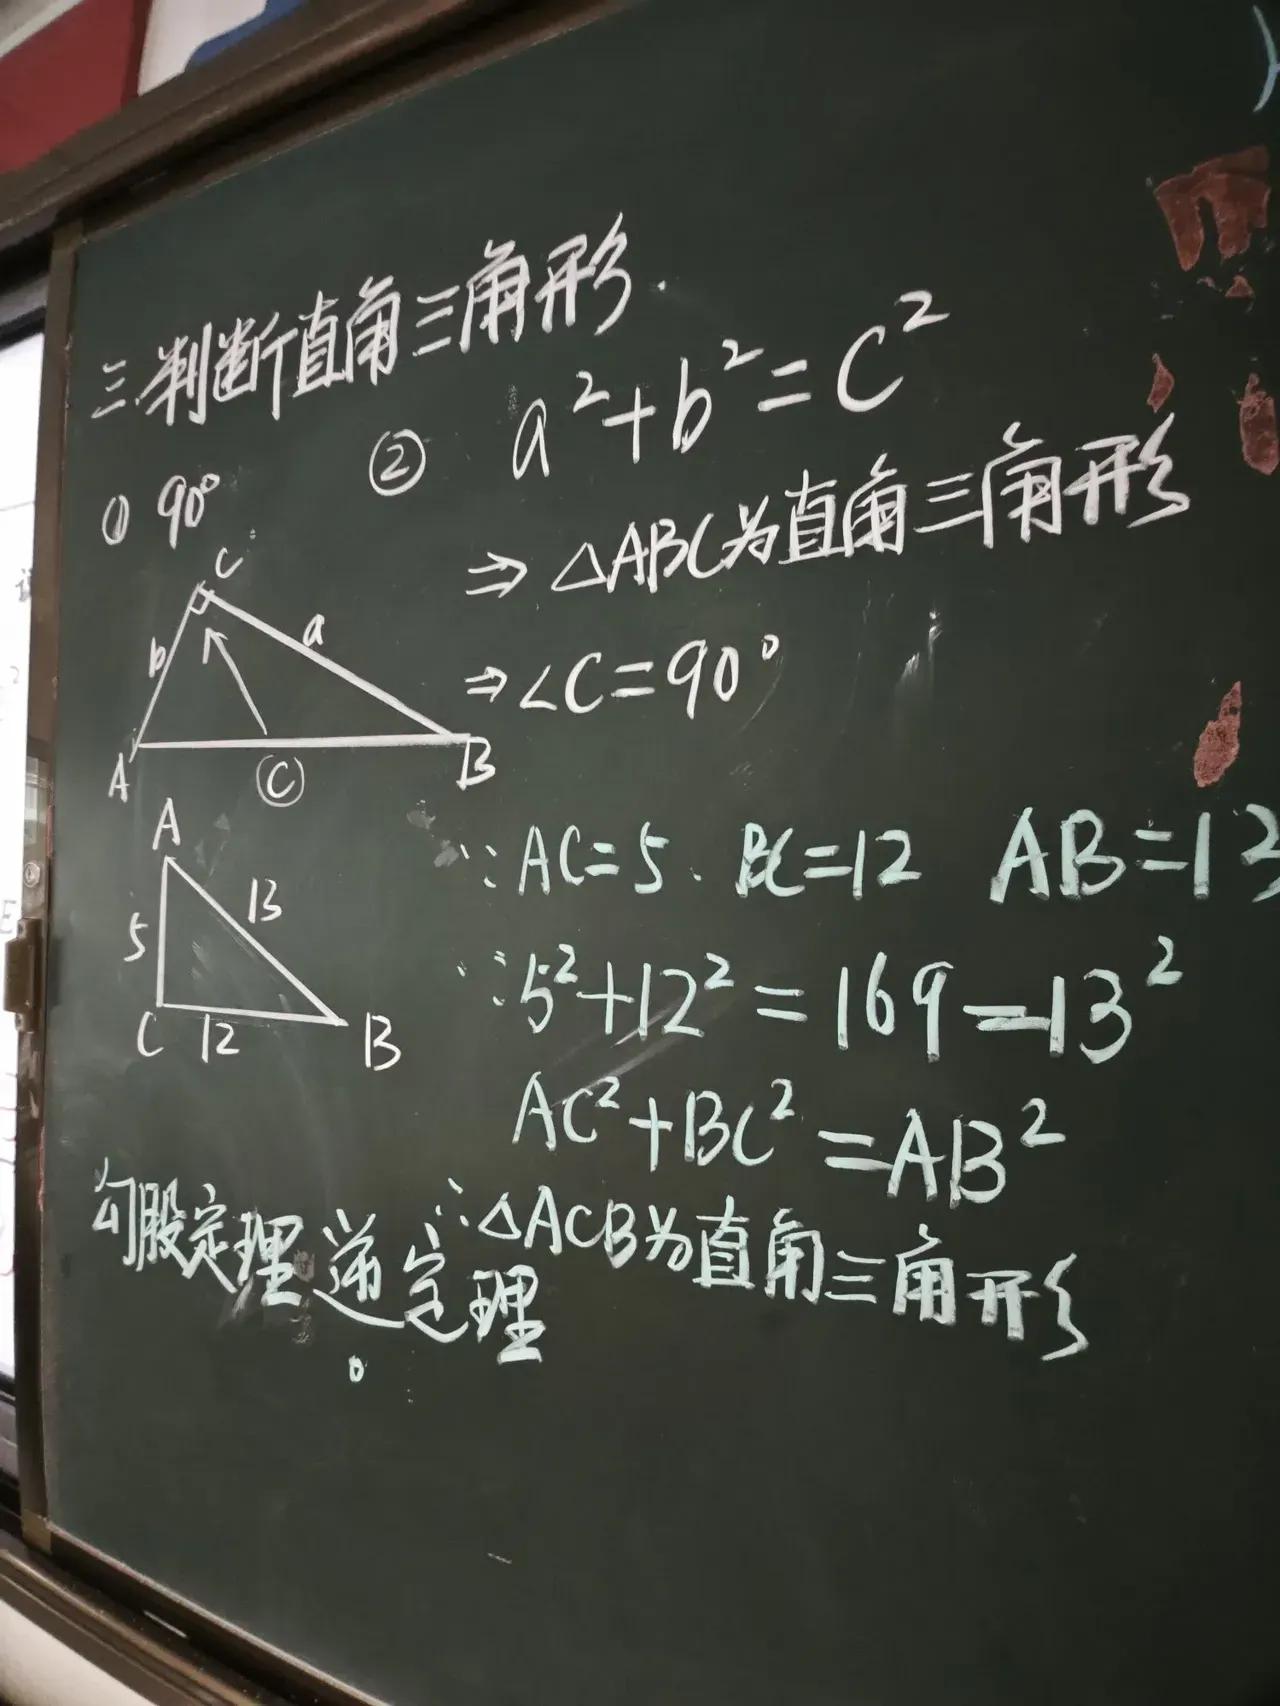 三.判断直角三角形.
① 90°
② a²+b²=C²
⇒ △ABC为直角三角形
⇒ ∠C=90°
C
b
a
A
B
C
A
5
13
C
12
B
∵ AC=5 . BC=12 AB=13
∵ 5²+12²=169=13²
AC²+BC²=AB²
∴ △ACB为直角三角形
勾股定理逆定理
。